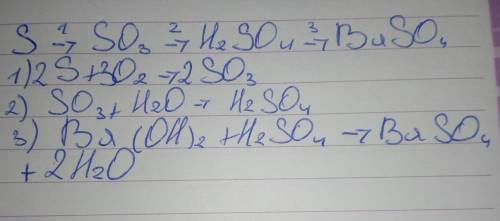 S 1→ SO₃ 2→ H₂SO₄ 3→ BaSO₄
1) 2S+3O₂→2SO₃
2) SO₃+H₂O→ H₂SO₄
3) Ba(OH)₂+H₂SO₄→BaSO₄
+2H₂O